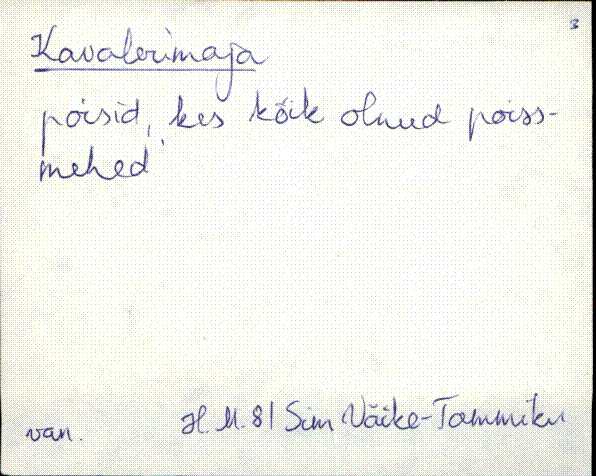 3
Kavalerimaja
poisid, kes kõik olnud poiss-
mehed
van. H. M. 81 Sim Väike-Tammiku